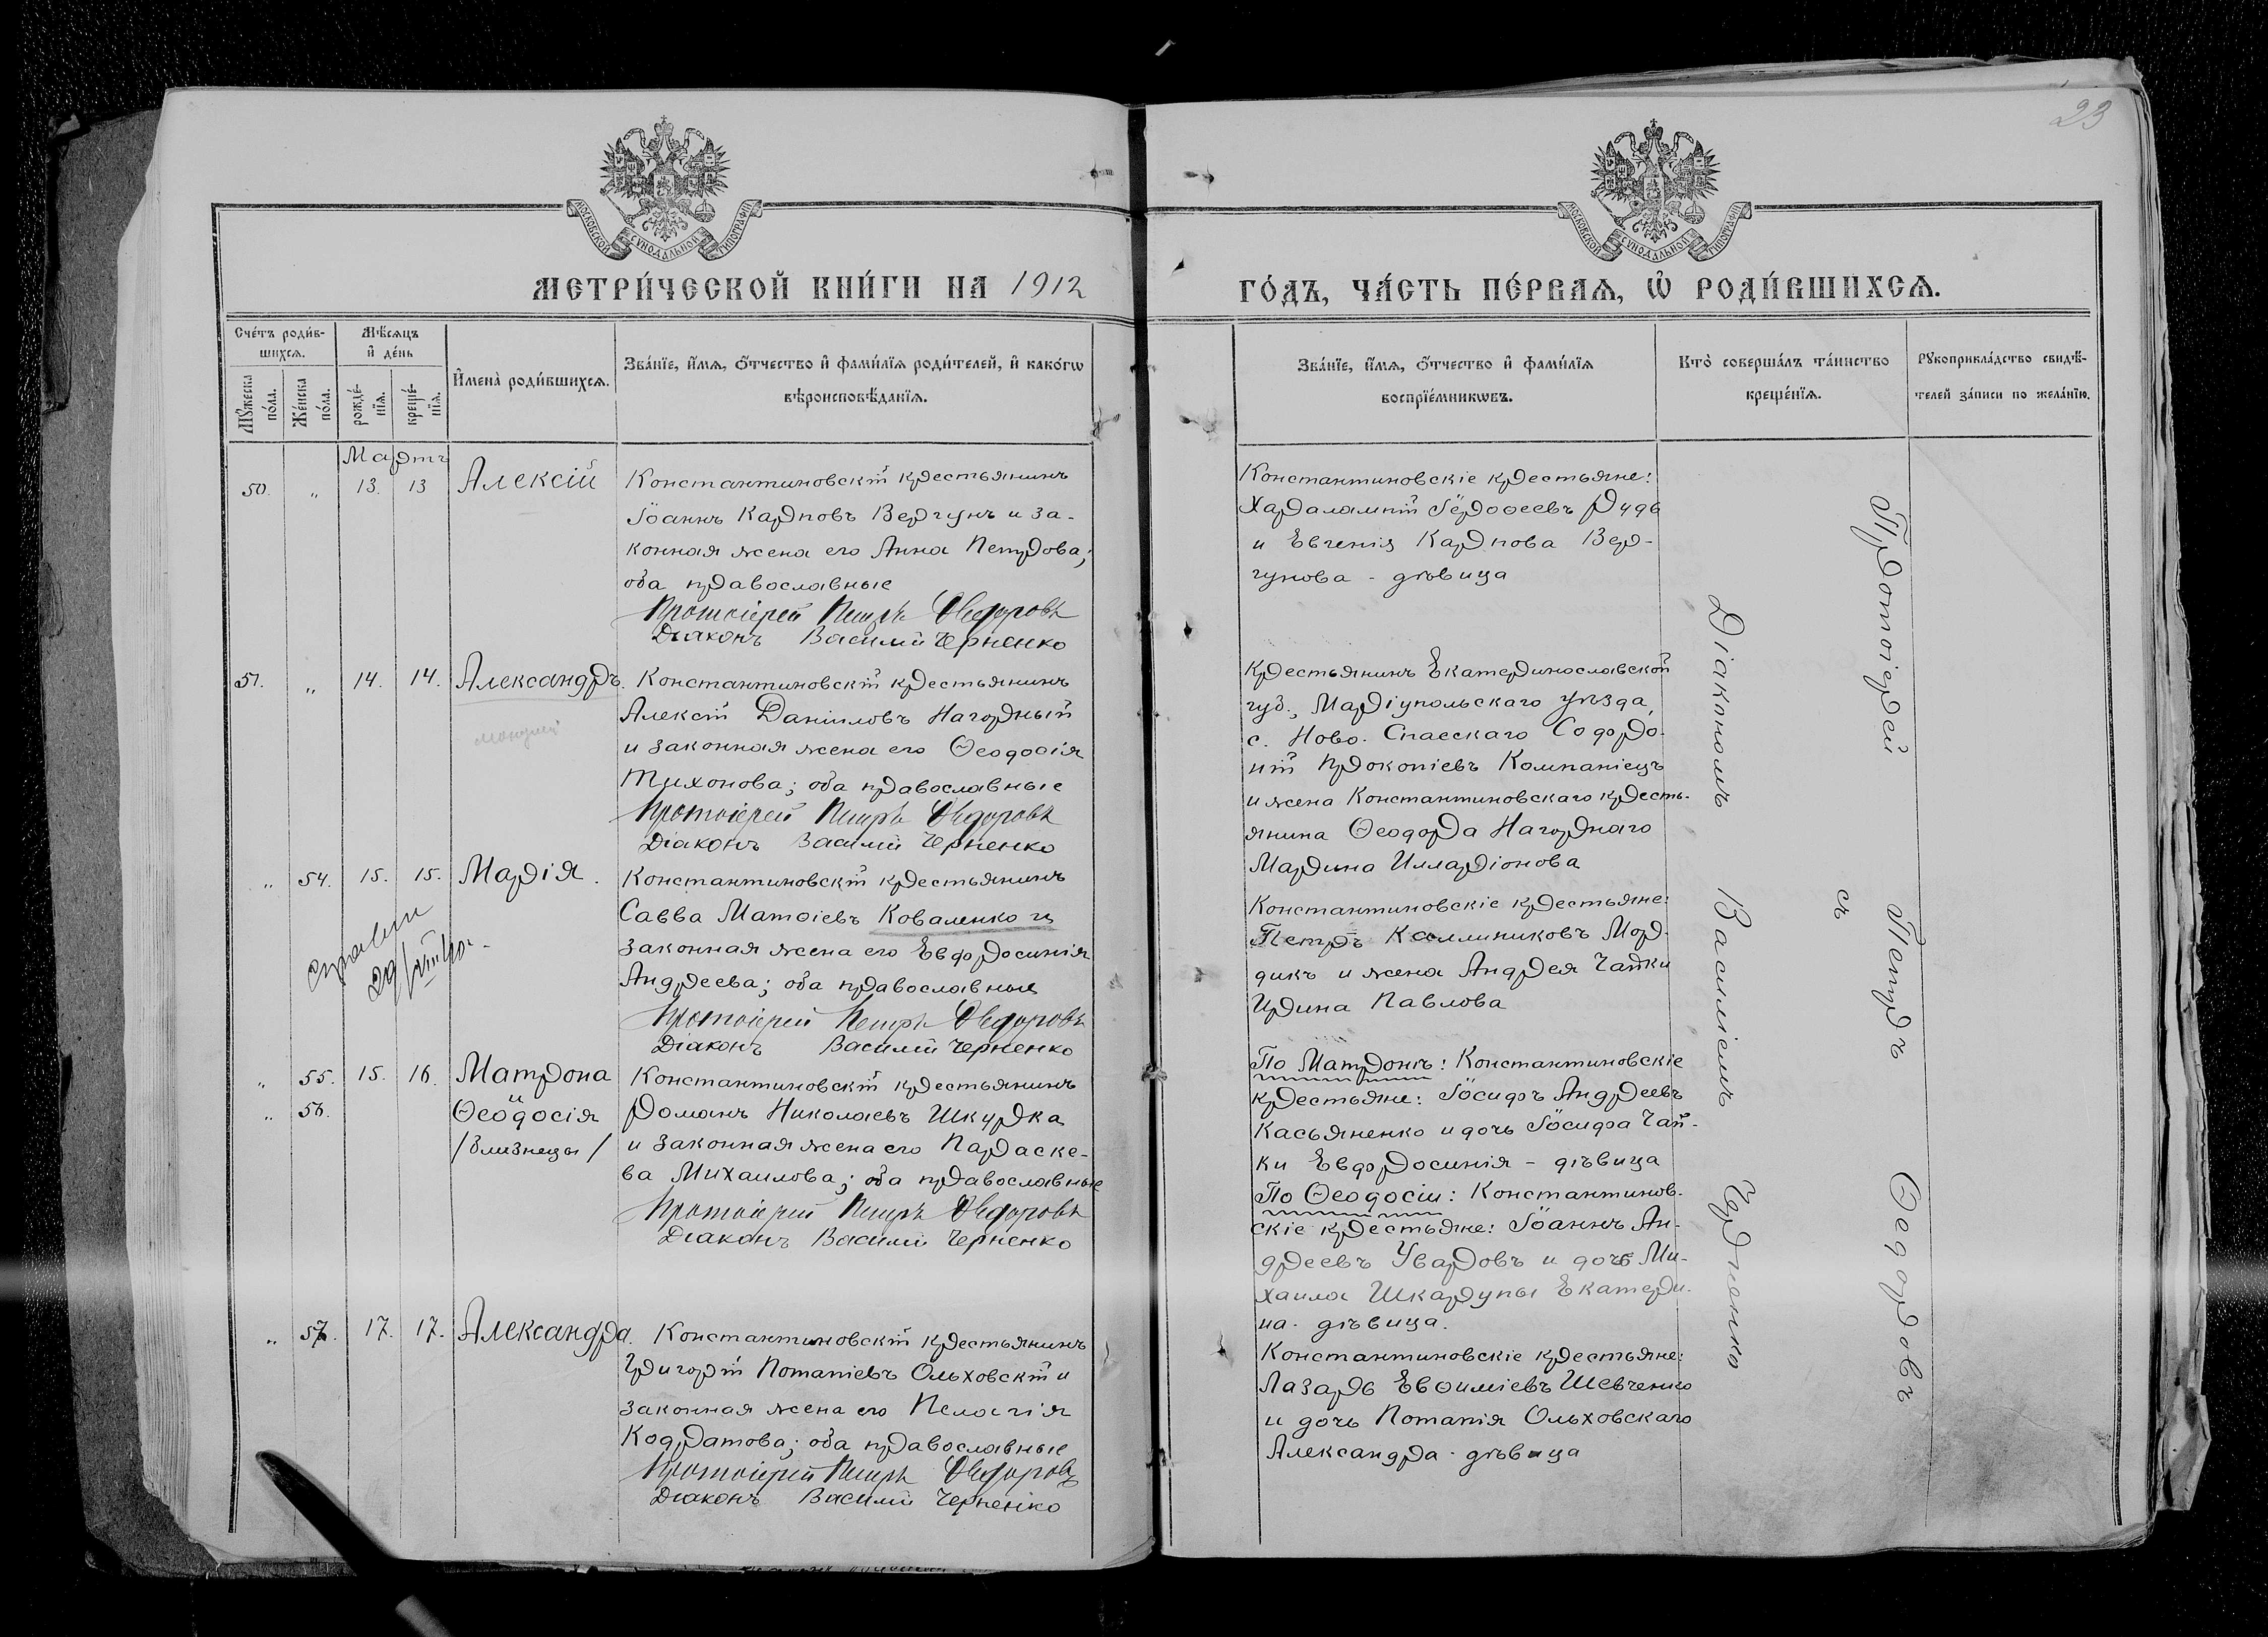 23
МОСКОВСКОЙ СѴНОДАЛЬНОЙ ТИПОГРАФІИ
МОСКОВСКОЙ СѴНОДАЛЬНОЙ ТИПОГРАФІИ
МЕТРИ́ЧЕСКОЙ КНИ́ГИ НА 1912
ГО́ДЪ, ЧА́СТЬ ПЕ́РВАѦ, Ѽ РОДИ́ВШИХСѦ.
Сче́тъ роди́в-
шихсѧ.
Мꙋ́жеска
по́ла.
Же́нска
по́ла.
Мѣ́сѧцъ
и҆ де́нь
рожде́-
нїѧ.
креще́-
нїѧ.
И҆мена̀ роди́вшихсѧ.
Зва́нїе, и҆́мѧ, ѻ҆́тчество и҆ фами́лїѧ роди́телей, и҆ како́гѡ
вѣроисповѣ́данїѧ.
Зва́нїе, и҆́мѧ, ѻ҆́тчество и҆ фами́лїѧ
воспрїе́мникѡвъ.
Кто̀ соверша́лъ та́инство
креще́нїѧ.
Рꙋкоприкла́дство свидѣ́-
телей за́писи по жела́нїю.
Мартъ
50. „ 13. 13 Алексій
Константиновскій крестьянинъ
Іоаннъ Карповъ Вергунъ и за-
конная жена его Анна Петрова;
оба православные
Протоіерей Петръ Ѳедоровъ
Діаконъ Василій Черненко
Константиновскіе крестьяне:
Харалампій Іероѳеевъ Рудь
и Евгенія Карпова Вер-
гунова - дѣвица
51. „ 14. 14. Александръ.
Константиновскій крестьянинъ
Алексій Даніиловъ Нагорный
и законная жена его Ѳеодосія
Тихонова; оба православные
Протоіерей Петръ Ѳедоровъ
Діаконъ Василій Черненко
Крестьянинъ Екатеринославской
губ., Маріупольскаго уѣзда,
с. Ново-Спасскаго Софро-
ній Прокопіевъ Компаніецъ
и жена Константиновскаго кресть-
янина Ѳеодора Нагорнаго
Марина Илларіонова
„ 54. 15. 15. Марія.
Константиновскій крестьянинъ
Савва Матѳіевъ Коваленко и
законная жена его Евфросинія
Андреева; оба православные
Протоіерей Петръ Ѳедоровъ
Діаконъ Василій Черненко
29/VIII 40 г.
Константиновскіе крестьяне:
Петръ Каллиниковъ Мор-
дикъ и жена Андрея Чайки
Ирина Павлова
„ 55. 15. 16. Матрона
„ 56. Ѳеодосія
/близнецы/
Константиновскій крестьянинъ
Романъ Николаевъ Шкурка
и законная жена его Параске-
ва Михаилова; оба православные
Протоіерей Петръ Ѳедоровъ
Діаконъ Василій Черненко
По Матронѣ: Константиновскіе
крестьяне: Іосифъ Андреевъ
Касьяненко и дочь Іосифа Чай-
ки Евфросинія - дѣвица
По Ѳеодосіи: Константинов-
скіе крестьяне: Іоаннъ Ан-
дреевъ Уваровъ и дочь Ми-
хаила Шкарупы Екатери-
на - дѣвица.
„ 57. 17. 17. Александра.
Константиновскій крестьянинъ
Григорій Потапіевъ Ольховскій и
законная жена его Пелагія
Кодратова; оба православные
Протоіерей Петръ Ѳедоровъ
Діаконъ Василій Черненко
Константиновскіе крестьяне:
Лазарь Евѳиміевъ Шевченко
и дочь Потапія Ольховскаго
Александра - дѣвица
Протоіерей Петръ Ѳедоровъ
съ
Діакономъ Василіемъ Черненко